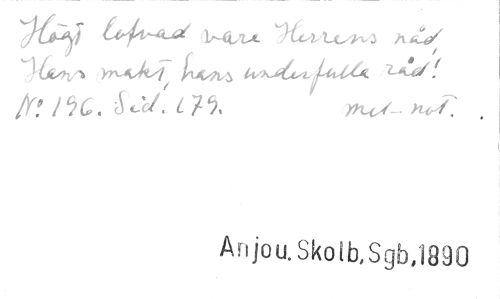 Högt lofvad vare Herrens nåd,
Hans makt, hans underfulla råd!
No: 196. Sid. 179. met-not.
Anjou. Skolb, Sgb, 1890